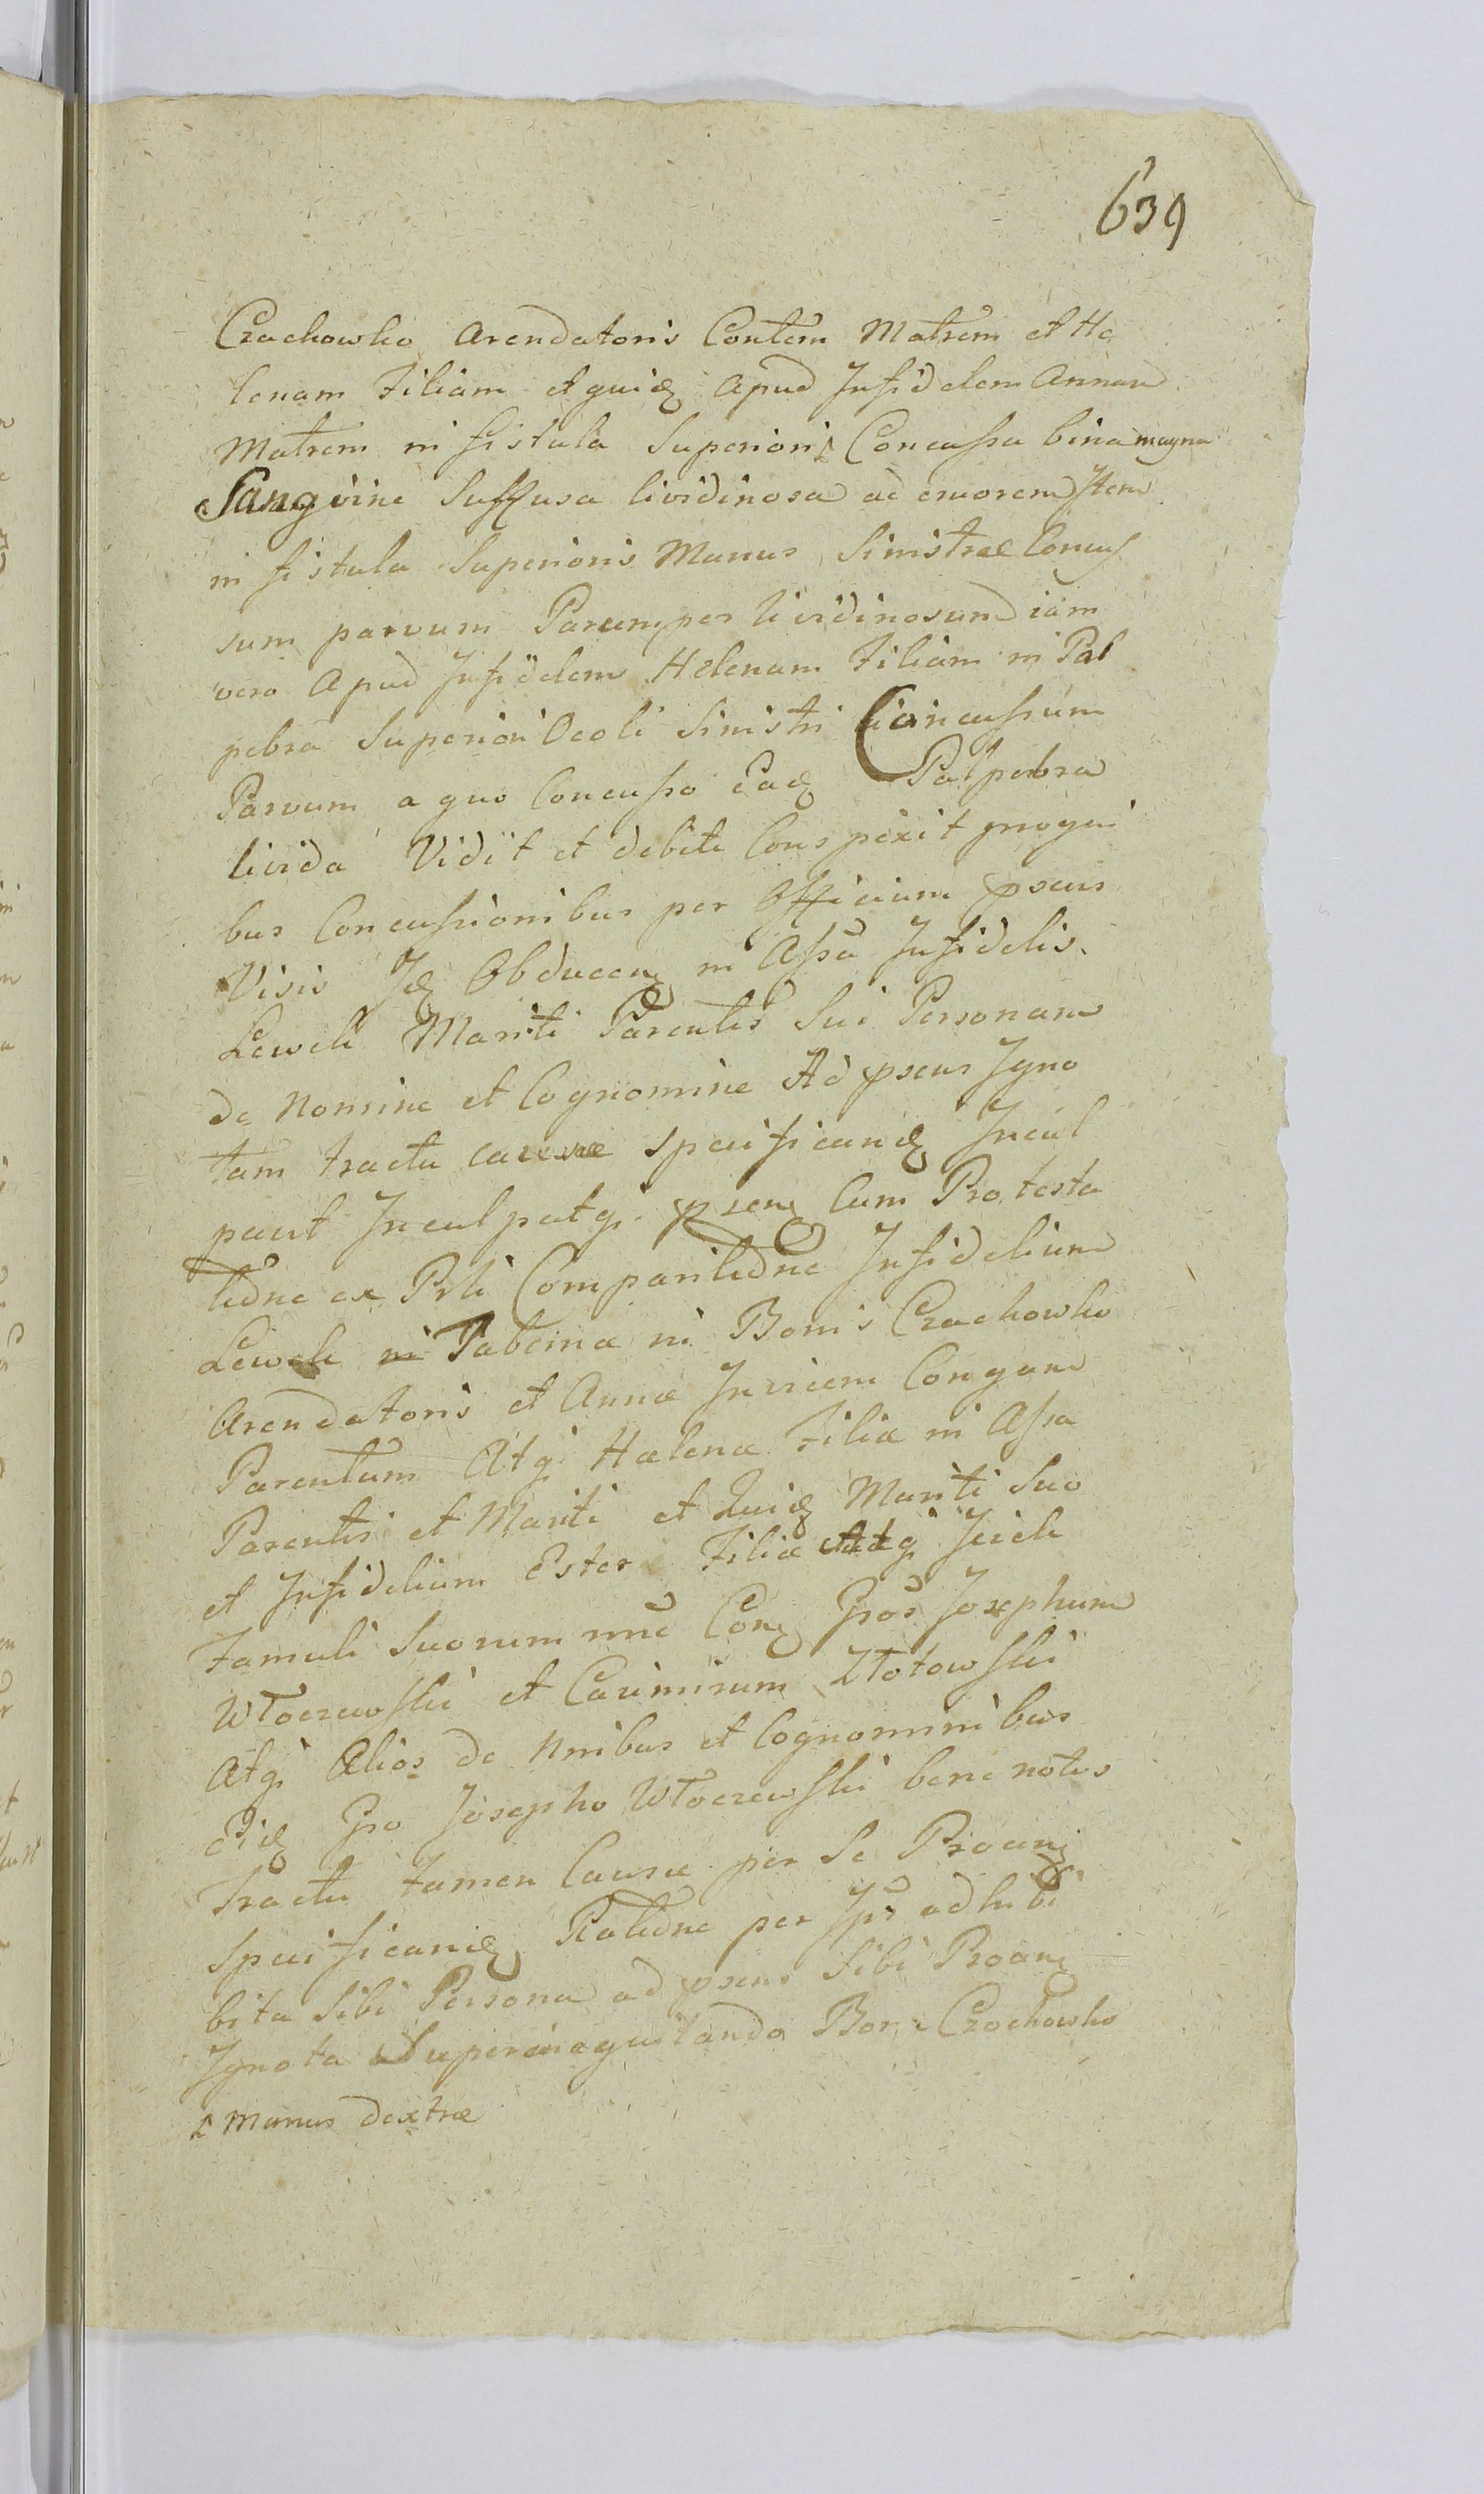 639
Czachowko Arendatoris Contem Matrem et He
lenam Filiam et quidẽ apud Infidelem Annam
Matrem in fistula Superioris Concussa bina magna
Sangvine Suffusa lividinosa ad cruorem Item
in fistula Superioris Manus Sinistrae Concus
sum parvum Parumper lividinosum iam
vero Apud Infidelem Helenam Filiam in Pal
pebra Superiori Ocoli Sinistri Concussum
Parvum a quo Concusso Eadẽ Palpebra
livida Vidit et debite Conspexit pro qui
bus Concussionibus per Officium psens
Visis Idẽ Obducen in Assa Infidelis
Lewek Mariti Parentis Sui Personam
de Nomine et Cognomine Ad psens Igno
tam tractu causae specificandẽ Incul
pavit Inculpatq psen Cum Protesta
tiõne ex Prti Comparitiõne Infidelium
Lewek in Taberna in Bonis Czachowko
Arendatoris et Annae Invicem Congum
Parentum Atq Haelenae Filiae in Assa
Parentis et Mariti et Quidẽ Mariti Suo
et Infidelium Ester Filiae Atq Icick
Famuli Suorum nnẽ Con Gros Josephum
Wtoczewski et Casimirum Złotowski
Atq Alios de Nnibus et Cognominibus
Eidẽ Gro Josepho Wtoczewski bene notos
Tractu tamen Causae per Se Proan
Specificandẽ Ratiõne per Ips adhi
bita Sibi Persona ad psens Sibi Proan
Ignota Superinequitando Bon Czachowko
manus dextrae